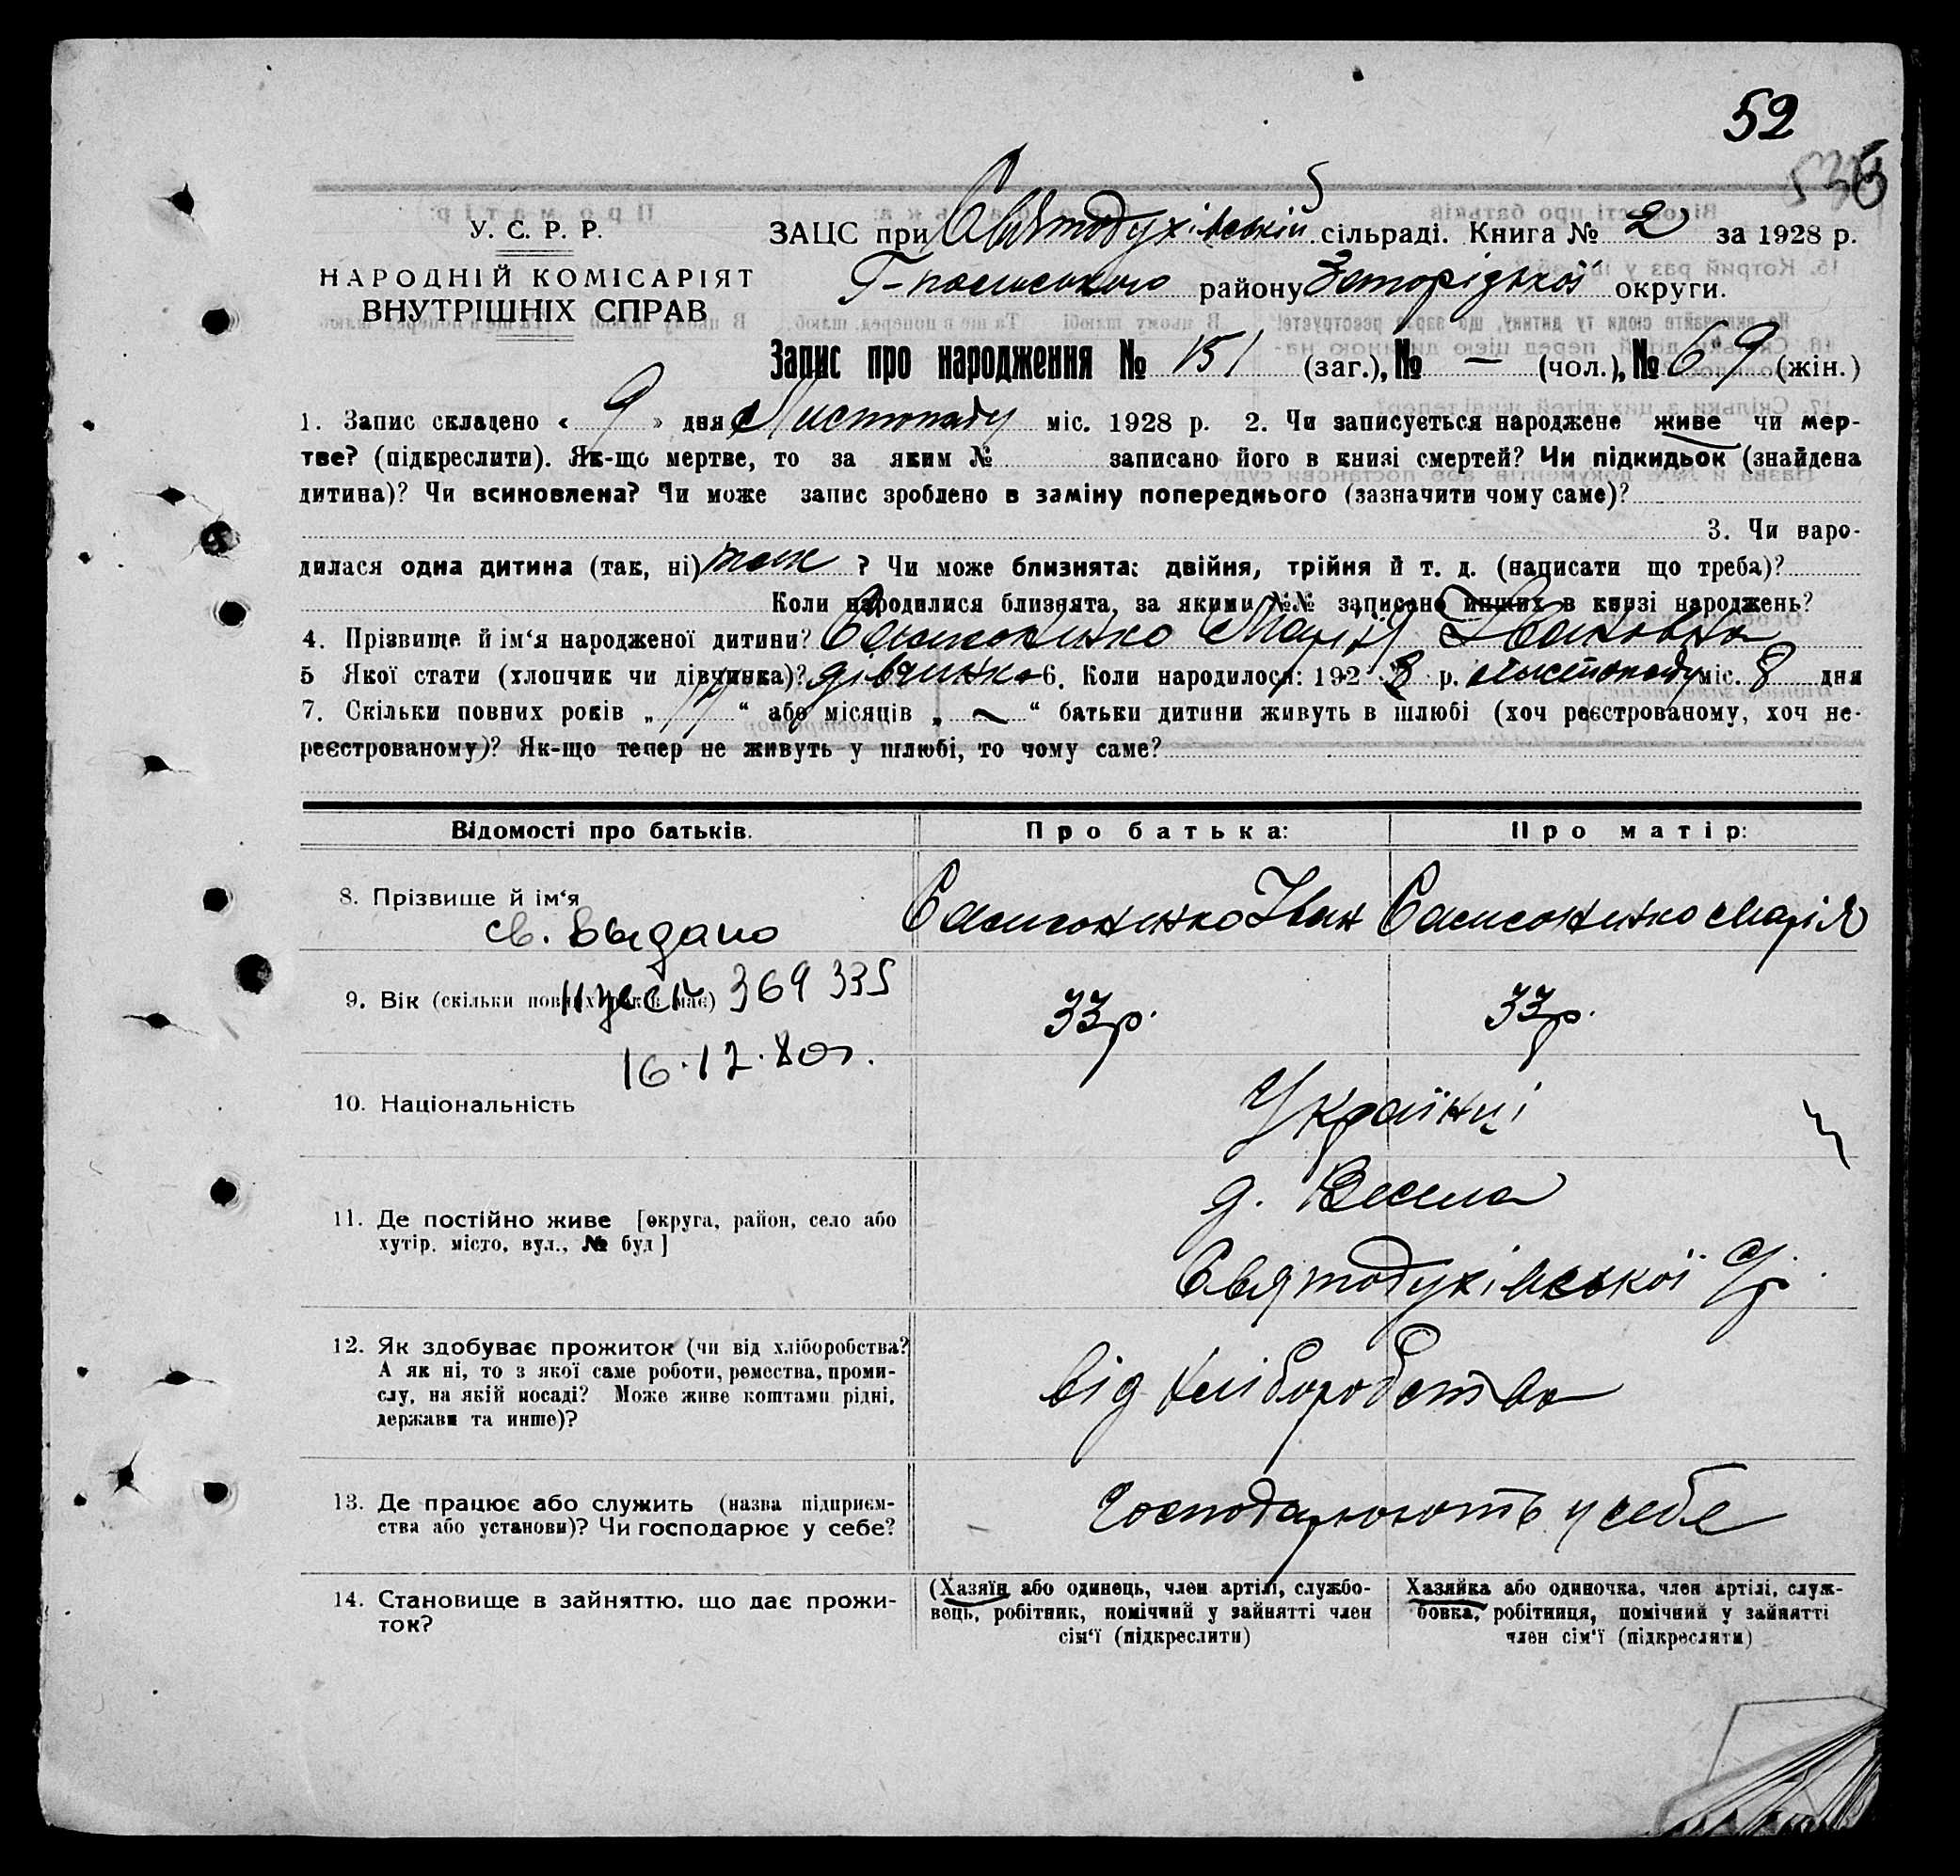 52
У. С. Р. Р.
НАРОДНІЙ КОМІСАРІЯТ
ВНУТРІШНІХ СПРАВ
ЗАЦС при Святодухівській сільраді. Книга № 2 за 1928 р.
району Запорізької округи.
Запис про народження № 151 (заг.), № — (чол.), № 69 (жін.)
1. Запис складено « 9 » дня Листопаду міс. 1928 р. 2. Чи записується народжене живе чи мер-
тве? (підкреслити). Як-що мертве, то за яким № записано його в книзі смертей? Чи підкидьок (знайдена
дитина)? Чи всиновлена? Чи може запис зроблено в заміну попереднього (зазначити чому саме)?
3. Чи наро-
дилася одна дитина (так, ні) так ? Чи може близнята: двійня, трійня й т. д. (написати що треба)?
Коли народилися близнята, за якими №№ записано инших в книзі народжень?
4. Прізвище й ім‘я народженої дитини? Самсоненко Марія Івановна
5 Якої стати (хлопчик чи дівчинка)? дівчинка 6. Коли народилося: 1928 р. листопаду міс. 8 дня
7. Скільки повних років „ 11 “ або місяців „ — “ батьки дитини живуть в шлюбі (хоч реєстрованому, хоч не-
реєстрованому)? Як-що тепер не живуть у шлюбі, то чому саме?
Відомості про батьків.
Про батька:
Про матір:
8. Прізвище й ім‘я
Самсоненко Іван
Самсоненко Марія
св. выдано
9. Вік (скільки повних років має)
369 335
33 р.
33 р.
16.12.80г.
10. Національність
Українці
11. Де постійно живе [округа, район, село або
хутір, місто, вул., № буд]
д. Весела
Святодухівської С/р.
12. Як здобуває прожиток (чи від хліборобства?
А як ні, то з якої саме роботи, ремества, проми-
слу, на якій посаді? Може живе коштами рідні,
держави та инше)?
від хліборобства
13. Де працює або служить (назва підприєм-
ства або установи)? Чи господарює у себе?
Господарюють у себе
14. Становище в зайняттю, що дає прожи-
ток?
(Хазяїн або одинець, член артілі, службо-
вець, робітник, помічний у зайнятті член
сім‘ї (підкреслити)
Хазяйка або одиночка, член артілі, служ-
бовка, робітниця, помічний у зайнятті
член сім‘ї (підкреслити)